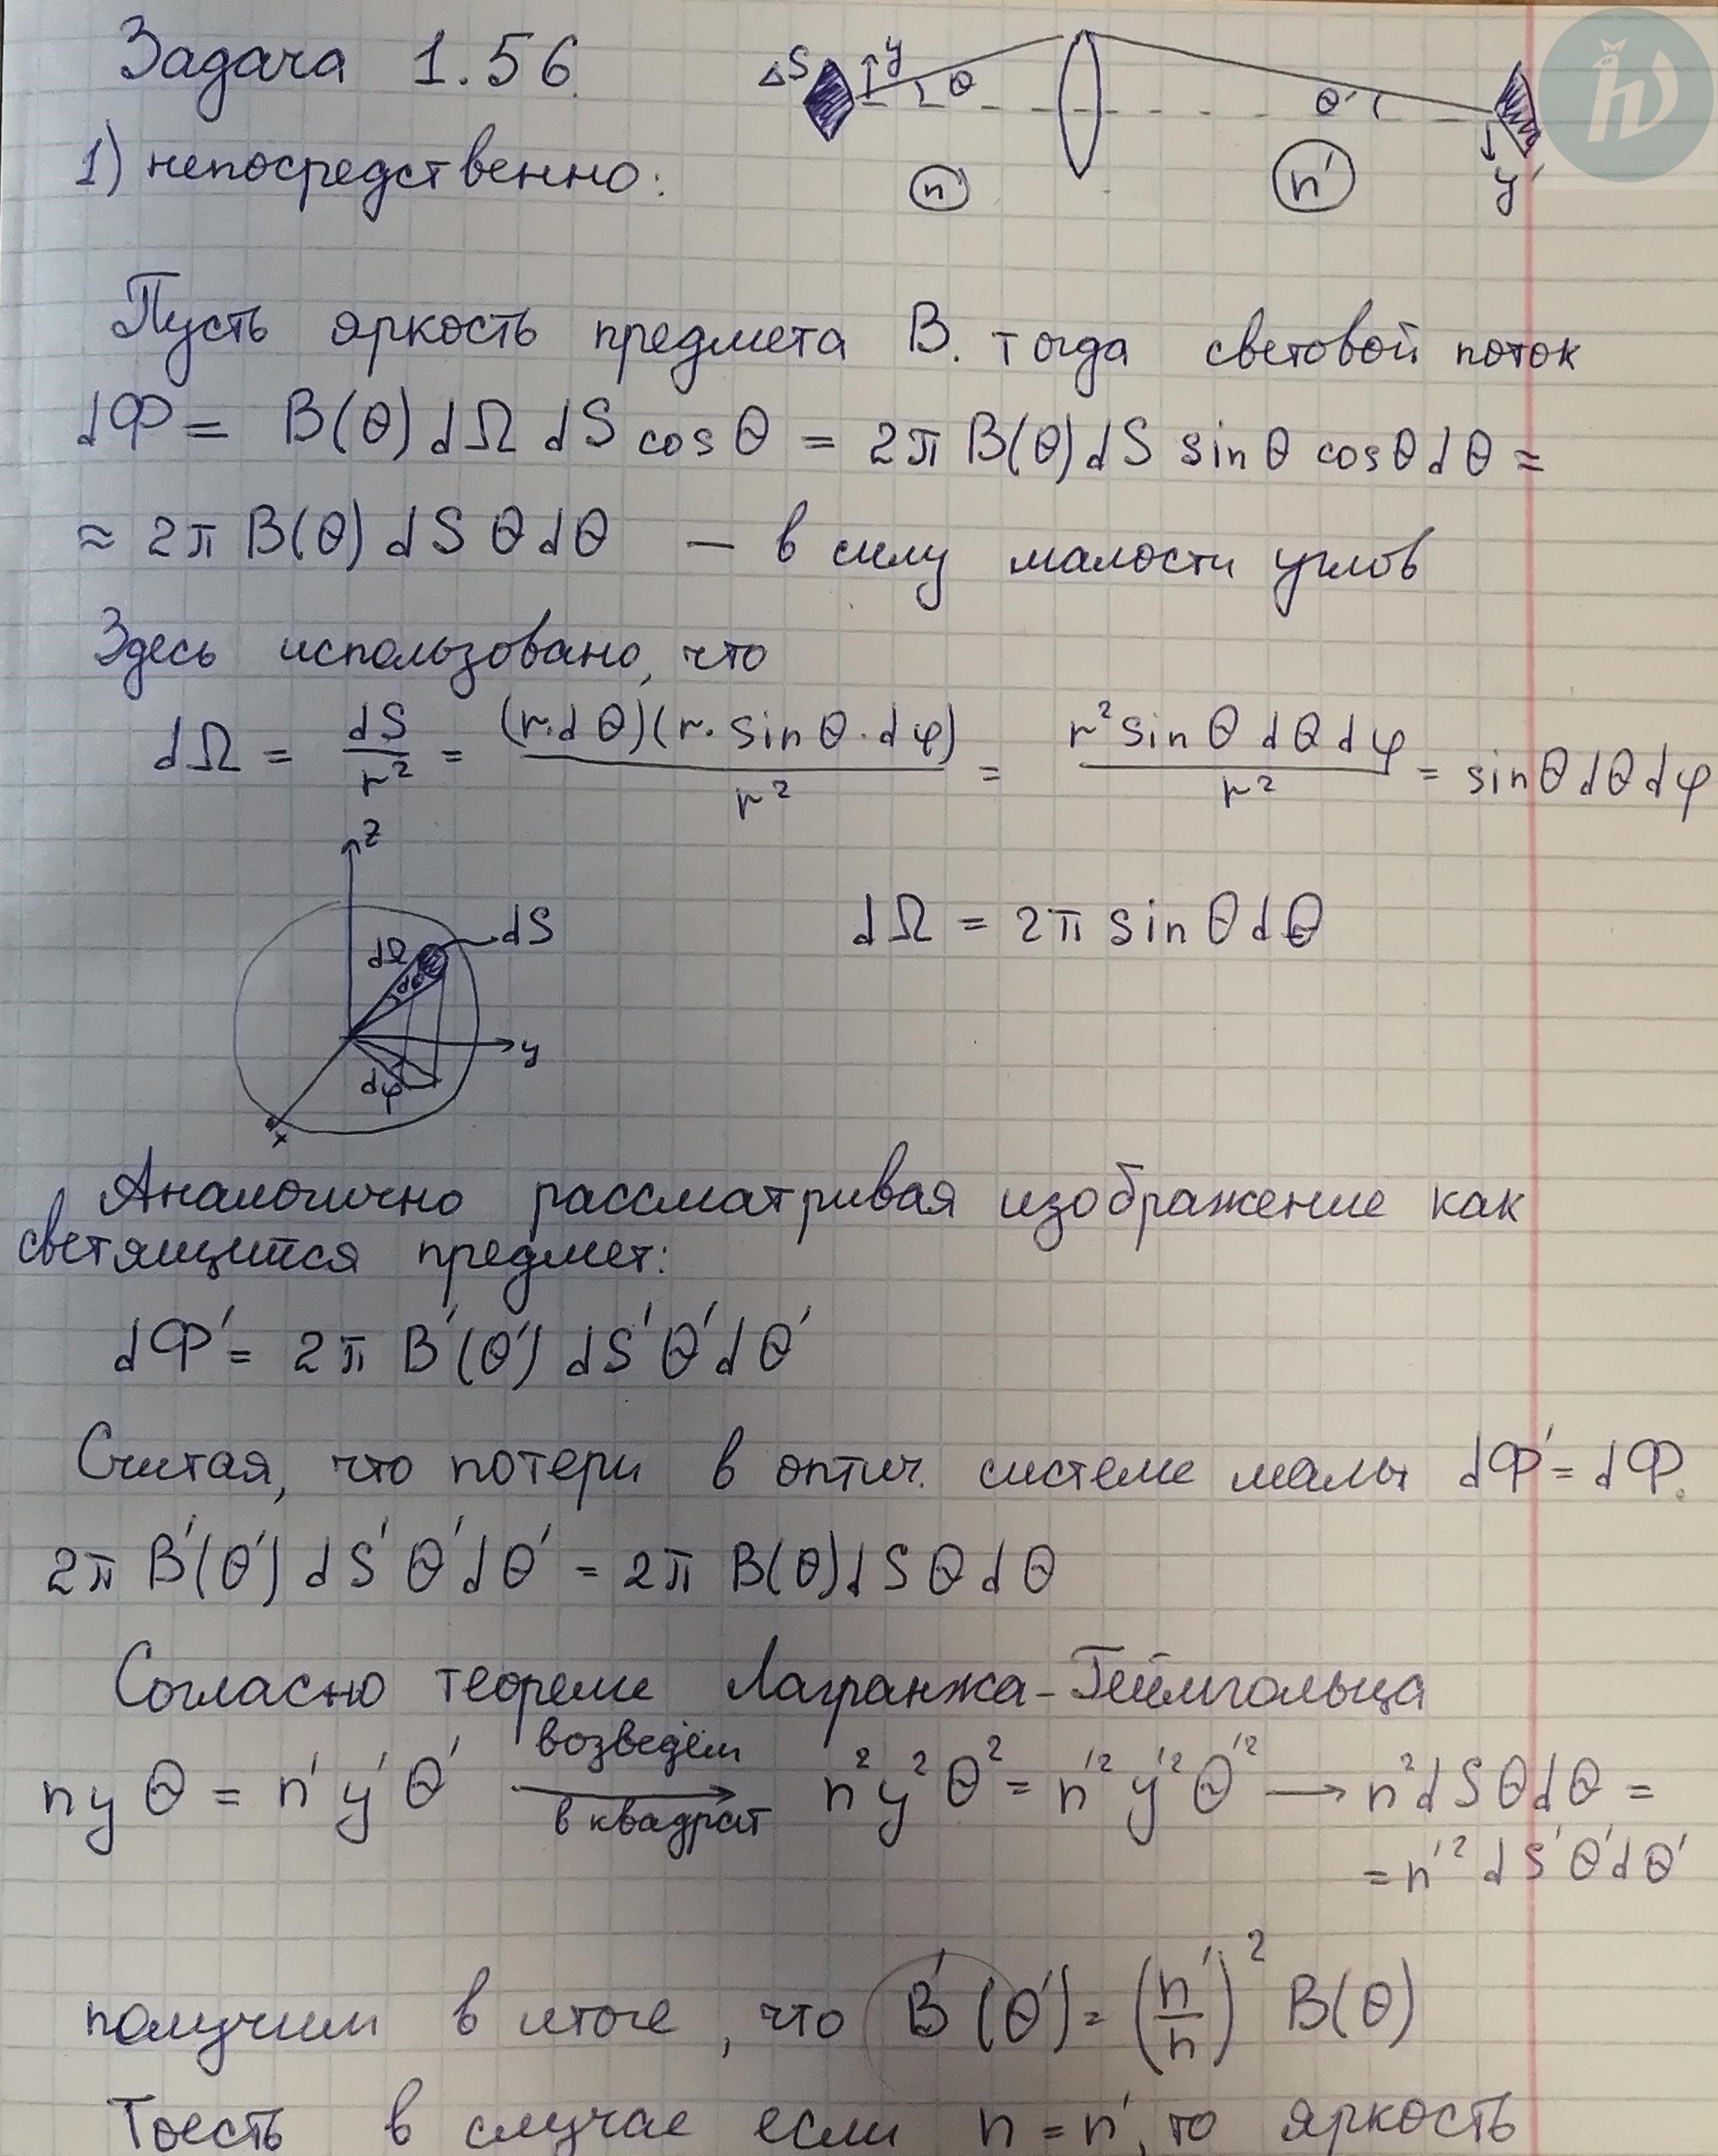 Задача 1.56.
ΔS y θ θ' y'
n n'
1) непосредственно:
Пусть яркость предмета B. тогда световой поток
dФ = B(θ) dΩ dS cosθ = 2π B(θ) dS sinθ cosθ dθ ≈
≈ 2π B(θ) dS θ dθ — в силу малости углов
Здесь использовано, что
dΩ = dS/r² = (r·dθ)(r·sinθ·dφ)/r² = r² sinθ dθ dφ/r² = sinθ dθ dφ
z
dΩ dθ dS
y
dφ
x
dΩ = 2π sinθ dθ
Аналогично рассматривая изображение как
светящийся предмет:
dФ' = 2π B'(θ') dS' θ' dθ'
Считая, что потери в оптич. системе малы dФ' = dФ.
2π B'(θ') dS' θ' dθ' = 2π B(θ) dS θ dθ
Согласно теореме Лагранжа-Геймгольца
n y θ = n' y' θ' возведём в квадрат → n² y² θ² = n'² y'² θ'² → n² dS θ dθ =
= n'² dS' θ' dθ'
получим в итоге, что B'(θ') = (n'/n)² B(θ)
Тоесть в случае если n = n', то яркость